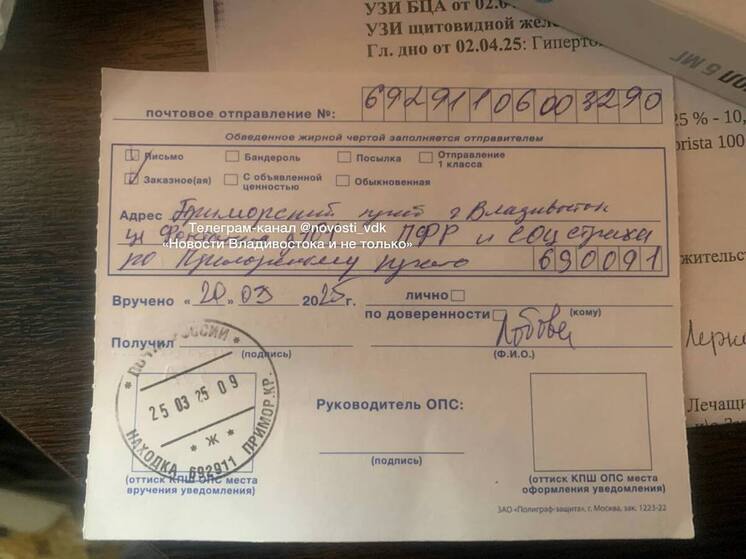 УЗИ БЦА от 02.0
УЗИ щитовидной желе
Гл. дно от 02.04.25: Гиперто
ПОЛ 5 МГ
25 % - 10,
orista 100
почтовое отправление №: 69291106003290
Обведенное жирной чертой заполняется отправителем
Письмо Бандероль Посылка Отправление 1 класса
Заказное(ая) С объявленной ценностью Обыкновенная
Адрес Приморский г Владивосток
Телеграм-канал @novosti_vdk
ПФР и соц страха
«Новости Владивостока и не только»
по Приморскому 690091
жительст
Вручено «20» 03 2025 г. лично
по доверенности (кому)
Получил
(подпись) (Ф.И.О.)
ПОЧТА РОССИИ
25 03 25 09
Ж
НАХОДКА 692911 ПРИМОР.КР.
Руководитель ОПС:
Лечащи
(подпись)
(оттиск КПШ ОПС места вручения уведомления)
(оттиск КПШ ОПС места оформления уведомления)
ЗАО «Полиграф-защита», г. Москва, зак. 1223-22